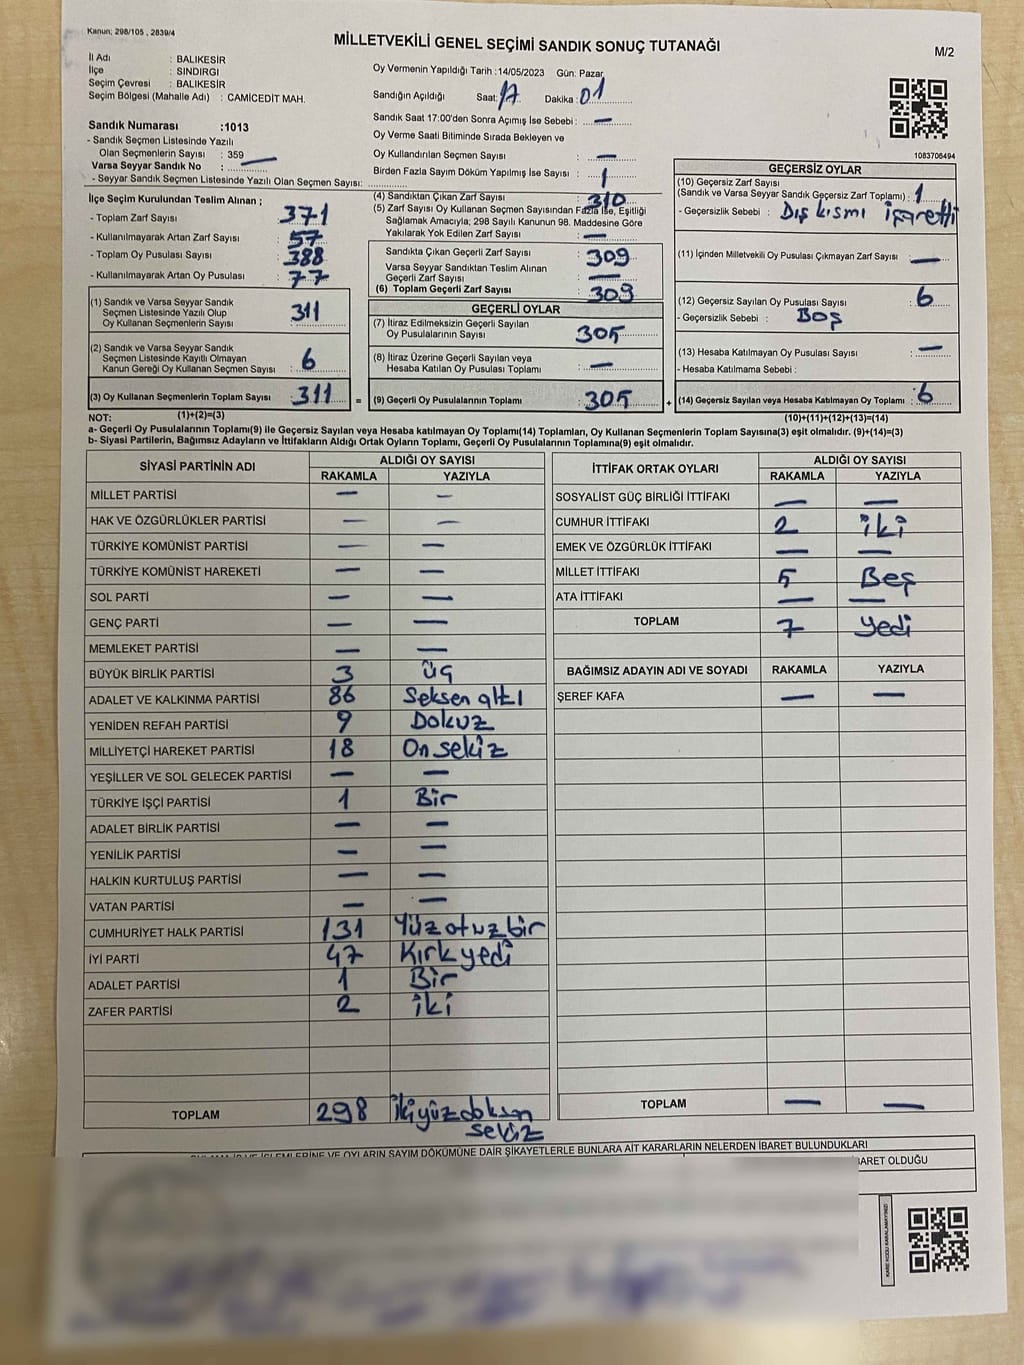 Kanun; 298/105 , 2839/4
MİLLETVEKİLİ GENEL SEÇİMİ SANDIK SONUÇ TUTANAĞI
M/2
İl Adı : BALIKESİR
İlçe : SINDIRGI
Seçim Çevresi : BALIKESİR
Seçim Bölgesi (Mahalle Adı) : CAMİCEDİT MAH.
Sandık Numarası :1013
- Sandık Seçmen Listesinde Yazılı
Olan Seçmenlerin Sayısı : 359
Varsa Seyyar Sandık No : —
- Seyyar Sandık Seçmen Listesinde Yazılı Olan Seçmen Sayısı:
Oy Vermenin Yapıldığı Tarih :14/05/2023 Gün: Pazar
Sandığın Açıldığı Saat: 17 Dakika : 01
Sandık Saat 17:00'den Sonra Açımış İse Sebebi : —
Oy Verme Saati Bitiminde Sırada Bekleyen ve
Oy Kullandırılan Seçmen Sayısı : —
Birden Fazla Sayım Döküm Yapılmış İse Sayısı : 1
1083706494
İlçe Seçim Kurulundan Teslim Alınan ;
- Toplam Zarf Sayısı : 371
- Kullanılmayarak Artan Zarf Sayısı : 57
- Toplam Oy Pusulası Sayısı : 388
- Kullanılmayarak Artan Oy Pusulası : 77
(1) Sandık ve Varsa Seyyar Sandık
Seçmen Listesinde Yazılı Olup
Oy Kullanan Seçmenlerin Sayısı 311
(2) Sandık ve Varsa Seyyar Sandık
Seçmen Listesinde Kayıtlı Olmayan
Kanun Gereği Oy Kullanan Seçmen Sayısı 6
(3) Oy Kullanan Seçmenlerin Toplam Sayısı 311 =
(4) Sandıktan Çıkan Zarf Sayısı : 310
(5) Zarf Sayısı Oy Kullanan Seçmen Sayısından Fazla İse, Eşitliği
Sağlamak Amacıyla; 298 Sayılı Kanunun 98. Maddesine Göre
Yakılarak Yok Edilen Zarf Sayısı : —
Sandıkta Çıkan Geçerli Zarf Sayısı : 309
Varsa Seyyar Sandıktan Teslim Alınan
Geçerli Zarf Sayısı : —
(6) Toplam Geçerli Zarf Sayısı : 309
GEÇERLİ OYLAR
(7) İtiraz Edilmeksizin Geçerli Sayılan
Oy Pusulalarının Sayısı 305
(8) İtiraz Üzerine Geçerli Sayılan veya
Hesaba Katılan Oy Pusulası Toplamı —
(9) Geçerli Oy Pusulalarının Toplamı 305 +
GEÇERSİZ OYLAR
(10) Geçersiz Zarf Sayısı
(Sandık ve Varsa Seyyar Sandık Geçersiz Zarf Toplamı) : 1
- Geçersizlik Sebebi : Dış kısmı işaretli
(11) İçinden Milletvekili Oy Pusulası Çıkmayan Zarf Sayısı : —
(12) Geçersiz Sayılan Oy Pusulası Sayısı : 6
- Geçersizlik Sebebi : Boş
(13) Hesaba Katılmayan Oy Pusulası Sayısı : —
- Hesaba Katılmama Sebebi :
(14) Geçersiz Sayılan veya Hesaba Katılmayan Oy Toplamı : 6
NOT: (1)+(2)=(3) (10)+(11)+(12)+(13)=(14)
a- Geçerli Oy Pusulalarının Toplamı(9) ile Geçersiz Sayılan veya Hesaba katılmayan Oy Toplamı(14) Toplamları, Oy Kullanan Seçmenlerin Toplam Sayısına(3) eşit olmalıdır. (9)+(14)=(3)
b- Siyasi Partilerin, Bağımsız Adayların ve İttifakların Aldığı Ortak Oyların Toplamı, Geçerli Oy Pusulalarının Toplamına(9) eşit olmalıdır.
SİYASİ PARTİNİN ADI ALDIĞI OY SAYISI
RAKAMLA YAZIYLA
MİLLET PARTİSİ — —
HAK VE ÖZGÜRLÜKLER PARTİSİ — —
TÜRKİYE KOMÜNİST PARTİSİ — —
TÜRKİYE KOMÜNİST HAREKETİ — —
SOL PARTİ — —
GENÇ PARTİ — —
MEMLEKET PARTİSİ — —
BÜYÜK BİRLİK PARTİSİ 3 üç
ADALET VE KALKINMA PARTİSİ 86 Seksen altı
YENİDEN REFAH PARTİSİ 9 Dokuz
MİLLİYETÇİ HAREKET PARTİSİ 18 On sekiz
YEŞİLLER VE SOL GELECEK PARTİSİ — —
TÜRKİYE İŞÇİ PARTİSİ 1 Bir
ADALET BİRLİK PARTİSİ — —
YENİLİK PARTİSİ — —
HALKIN KURTULUŞ PARTİSİ — —
VATAN PARTİSİ — —
CUMHURİYET HALK PARTİSİ 131 Yüz otuz bir
İYİ PARTİ 47 Kırk yedi
ADALET PARTİSİ 1 Bir
ZAFER PARTİSİ 2 iki
TOPLAM 298 ikiyüz doksan
sekiz
İTTİFAK ORTAK OYLARI ALDIĞI OY SAYISI
RAKAMLA YAZIYLA
SOSYALİST GÜÇ BİRLİĞİ İTTİFAKI — —
CUMHUR İTTİFAKI 2 iki
EMEK VE ÖZGÜRLÜK İTTİFAKI — —
MİLLET İTTİFAKI 5 Beş
ATA İTTİFAKI — —
TOPLAM 7 yedi
BAĞIMSIZ ADAYIN ADI VE SOYADI RAKAMLA YAZIYLA
ŞEREF KAFA — —
TOPLAM — —
İŞLEMLERİNE VE OYLARIN SAYIM DÖKÜMÜNE DAİR ŞİKAYETLERLE BUNLARA AİT KARARLARIN NELERDEN İBARET BULUNDUKLARI
İBARET OLDUĞU
KARE KODU KARALAMAYINIZ!